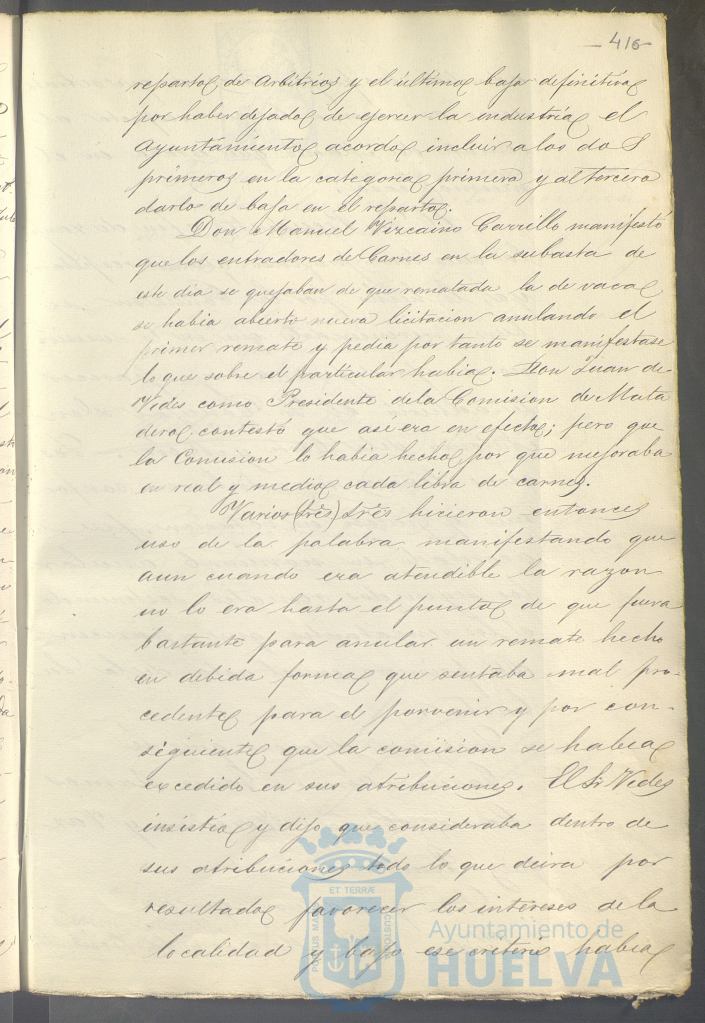 -416-
reparto de arbitrios y el último baja definitiva
por haber dejado de ejercer la industria el
Ayuntamiento acordó incluir a los dos
primeros en la categoria primera y al tercero
darlo de baja en el reparto.
Don Manuel Vizcaino Carrillo manifestó
que los entradores de Carnes en la subasta de
este dia se quejaban de que rematada la de vaca
se habia abierto nueva licitacion anulando el
primer remate y pedia por tanto se manifestase
lo que sobre el particular habia. Don Juan de
Vides como Presidente de la Comision de Mata
dero contestó que asi era en efecto; pero que
la Comision lo habia hecho por que mejoraba
en real y medio cada libra de carne.
Varios Sres hicieron entonces
uso de la palabra manifestando que
aun cuando era atendible la razon
no lo era hasta el punto de que fuera
bastante para anular un remate hecho
en debida forma que sentaba mal pre-
cedente para el porvenir y por con-
siguiente que la comision se habia
excedido en sus atribuciones. El Sr Vides
insistió y dijo que consideraba dentro de
sus atribuciones todo lo que diera por
resultado favorecer los intereses de la
localidad y bajo ese criterio habia
ET TERRÆ
PORTUS MARIS
CUSTODIA
Ayuntamiento de
HUELVA